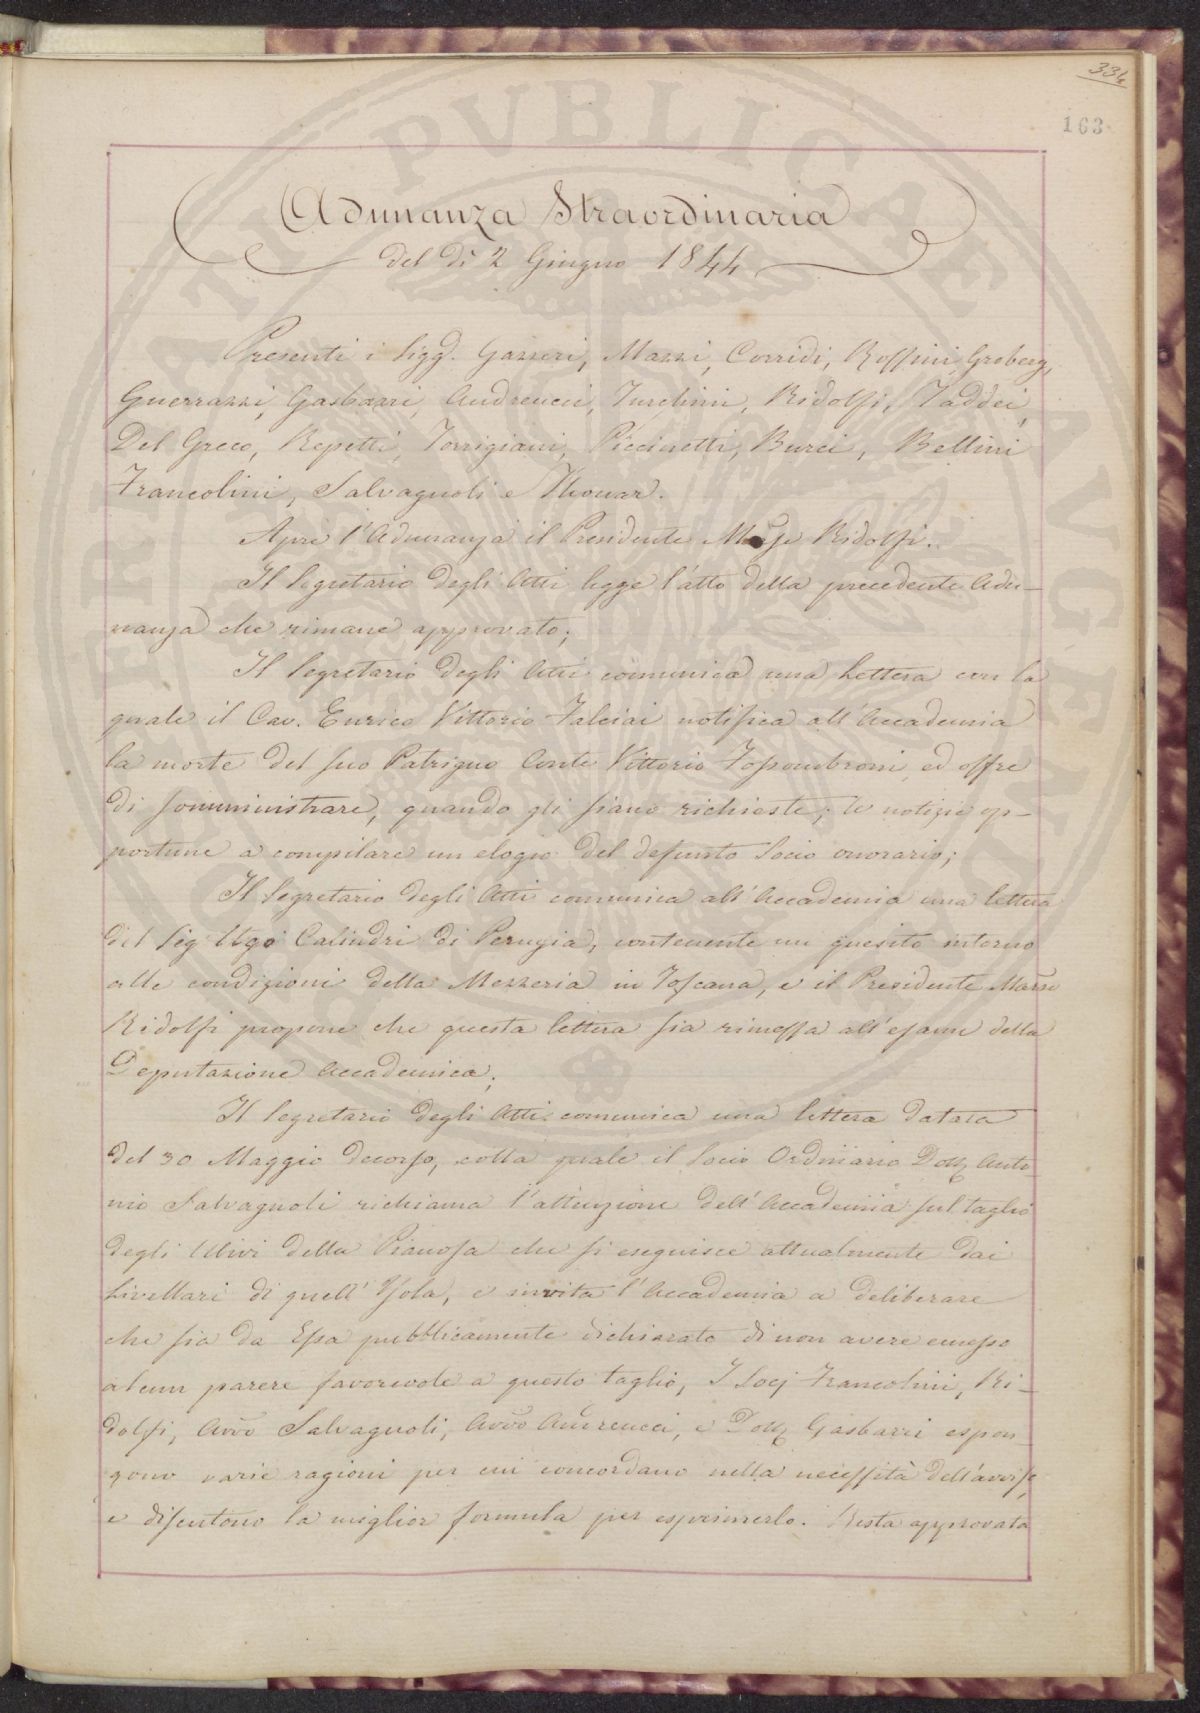 334
163
Adunanza Straordinaria
del dì 2 Giugno 1844
Presenti i Sigg. Gazzeri, Mazzi, Corridi, Roffini, Groberg,
Guerrazzi, Gasbarri, Andreucci, Turchini, Ridolfi, Taddei,
Del Greco, Repetti, Torrigiani, Piccinetti, Burci, Bellini
Francolini, Salvagnoli e Thouar.
Aprì l'Adunanza il Presidente Ridolfi.
Il Segretario degli Atti legge l'atto della precedente Adu-
nanza che rimane approvato;
Il Segretario degli Atti comunica una Lettera con la
quale il Cav. Enrico Vittorio Falciai notifica all'Accademia
la morte del suo Patrigno Conte Vittorio Fossombroni, ed offre
di somministrare, quando gli siano richieste, le notizie op-
portune a compilare un elogio del defunto Socio onorario;
Il Segretario degli Atti comunica all'Accademia una lettera
del Sig Ugo Calindri di Perugia, contenente un quesito intorno
alle condizioni della Mezzeria in Toscana, e il Presidente Marse
Ridolfi propone che questa lettera sia rimessa all'esame della
Deputazione Accademica;
Il Segretario degli Atti comunica una lettera datata
del 30 Maggio decorso, colla quale il Socio Ordinario Dott Anto
nio Salvagnoli richiama l'attenzione dell'Accademia sul taglio
degli Ulivi della Pianosa che si eseguisce attualmente dai
Livellari di quell'Isola, e invita l'Accademia a deliberare
che sia da Essa pubblicamente dichiarato di non avere emesso
alcun parere favorevole a questo taglio, I Socj Francolini, Ri-
dolfi, Avvo Salvagnoli, Avvo Andreucci, e Dott Gasbarri espon-
gono varie ragioni per cui concordano nella necessità dell'avviso,
e discutono la miglior formula per esprimerlo. Resta approvata